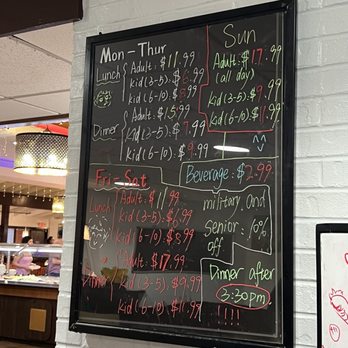 Mon - Thur
Lunch
Adult: $11.99
kid (3-5) $6.99
kid (6-10) $8.99
Dinner
Adult: $15.99
kid (3-5) $7.99
kid (6-10) $9.99
Sun
Adult: $17.99
(all day)
kid (3-5) $9.99
kid (6-10) $11.99
Fri - Sat
Lunch
Adult: $11.99
kid (3-5) $6.99
kid (6-10) $8.99
Dinner
Adult: $17.99
kid (3-5) $9.99
kid (6-10) $11.99
Beverage: $2.99
military and
Senior: 10%
off
Dinner after
3:30pm
!!!!